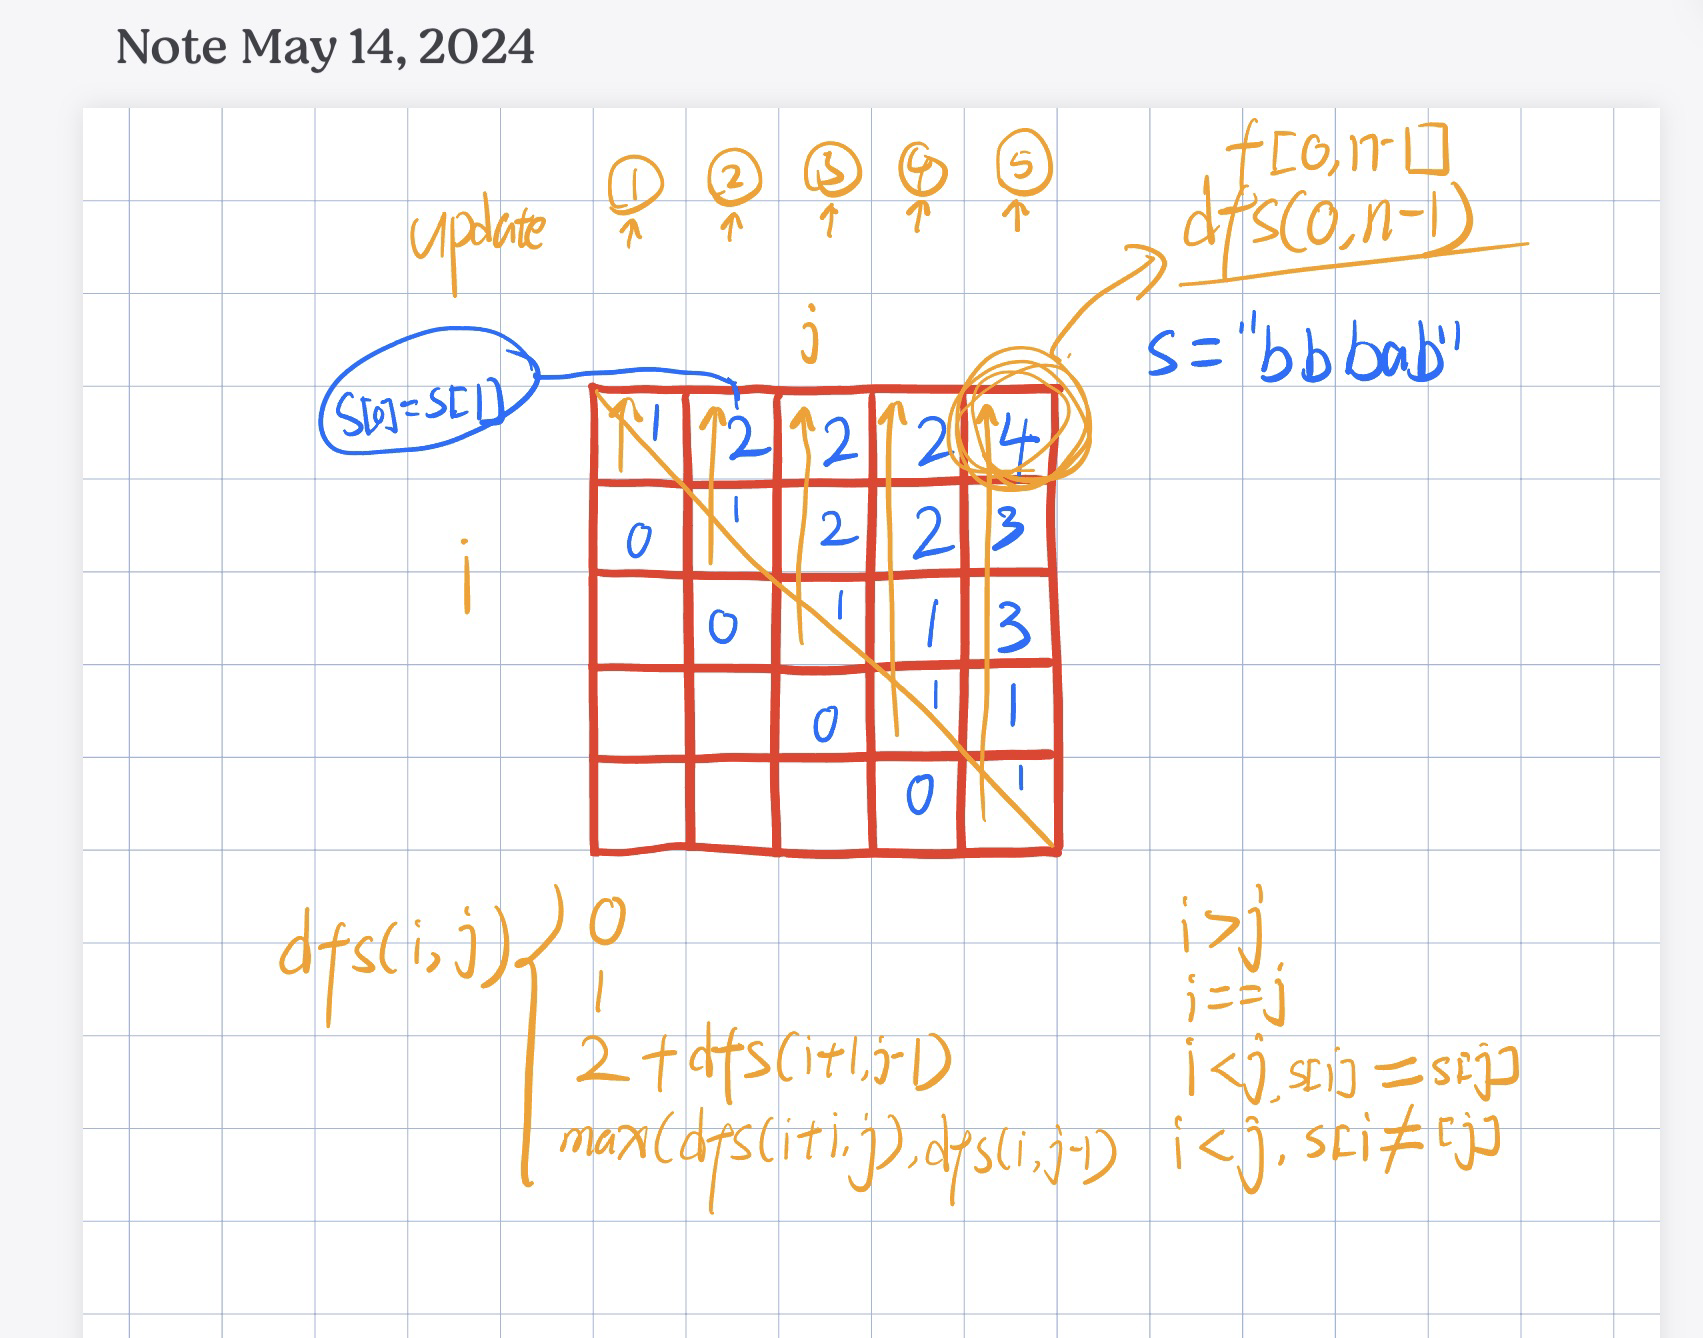 Note May 14, 2024
① ② ③ ④ ⑤
f[0,n-1]
update ↑ ↑ ↑ ↑ ↑
dfs(0,n-1)
j
s="bbbab"
S[0]=S[1]
1 2 2 2 4
i
0 1 2 2 3
0 1 1 3
0 1 1
0 1
dfs(i,j) { 0 i>j
1 i==j
2+dfs(i+1,j-1) i<j, s[i]=s[j]
max(dfs(i+1,j),dfs(i,j-1) i<j, s[i≠[j]